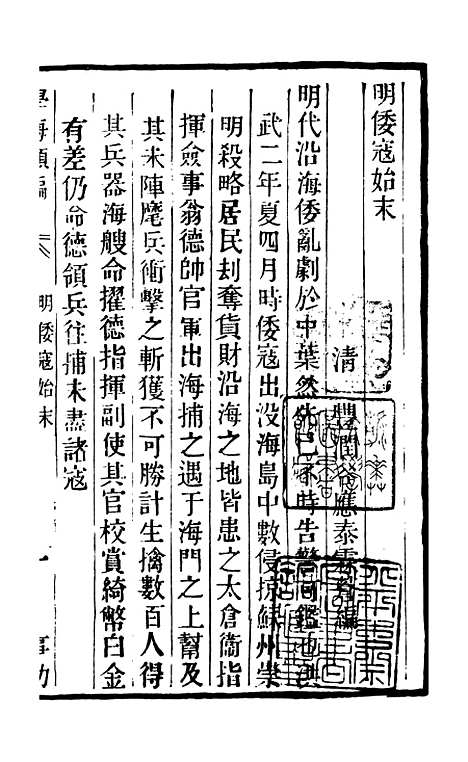 明倭寇始末
清 豐潤谷應泰 編
明代沿海倭亂劇於中葉然 已 時告警 鑑也洪
武二年夏四月時倭寇出没海島中數侵掠蘇州崇
明殺略居民刦奪貨財沿海之地皆患之太倉衞指
揮僉事翁德帥官軍出海捕之遇于海門之上幫及
其未陣麾兵衝擊之斬獲不可勝計生擒數百人得
其兵器海艘命擢德指揮副使其官校賞綺幣白金
有差仍命德領兵往捕未盡諸寇
學海類編
明倭寇始末
一